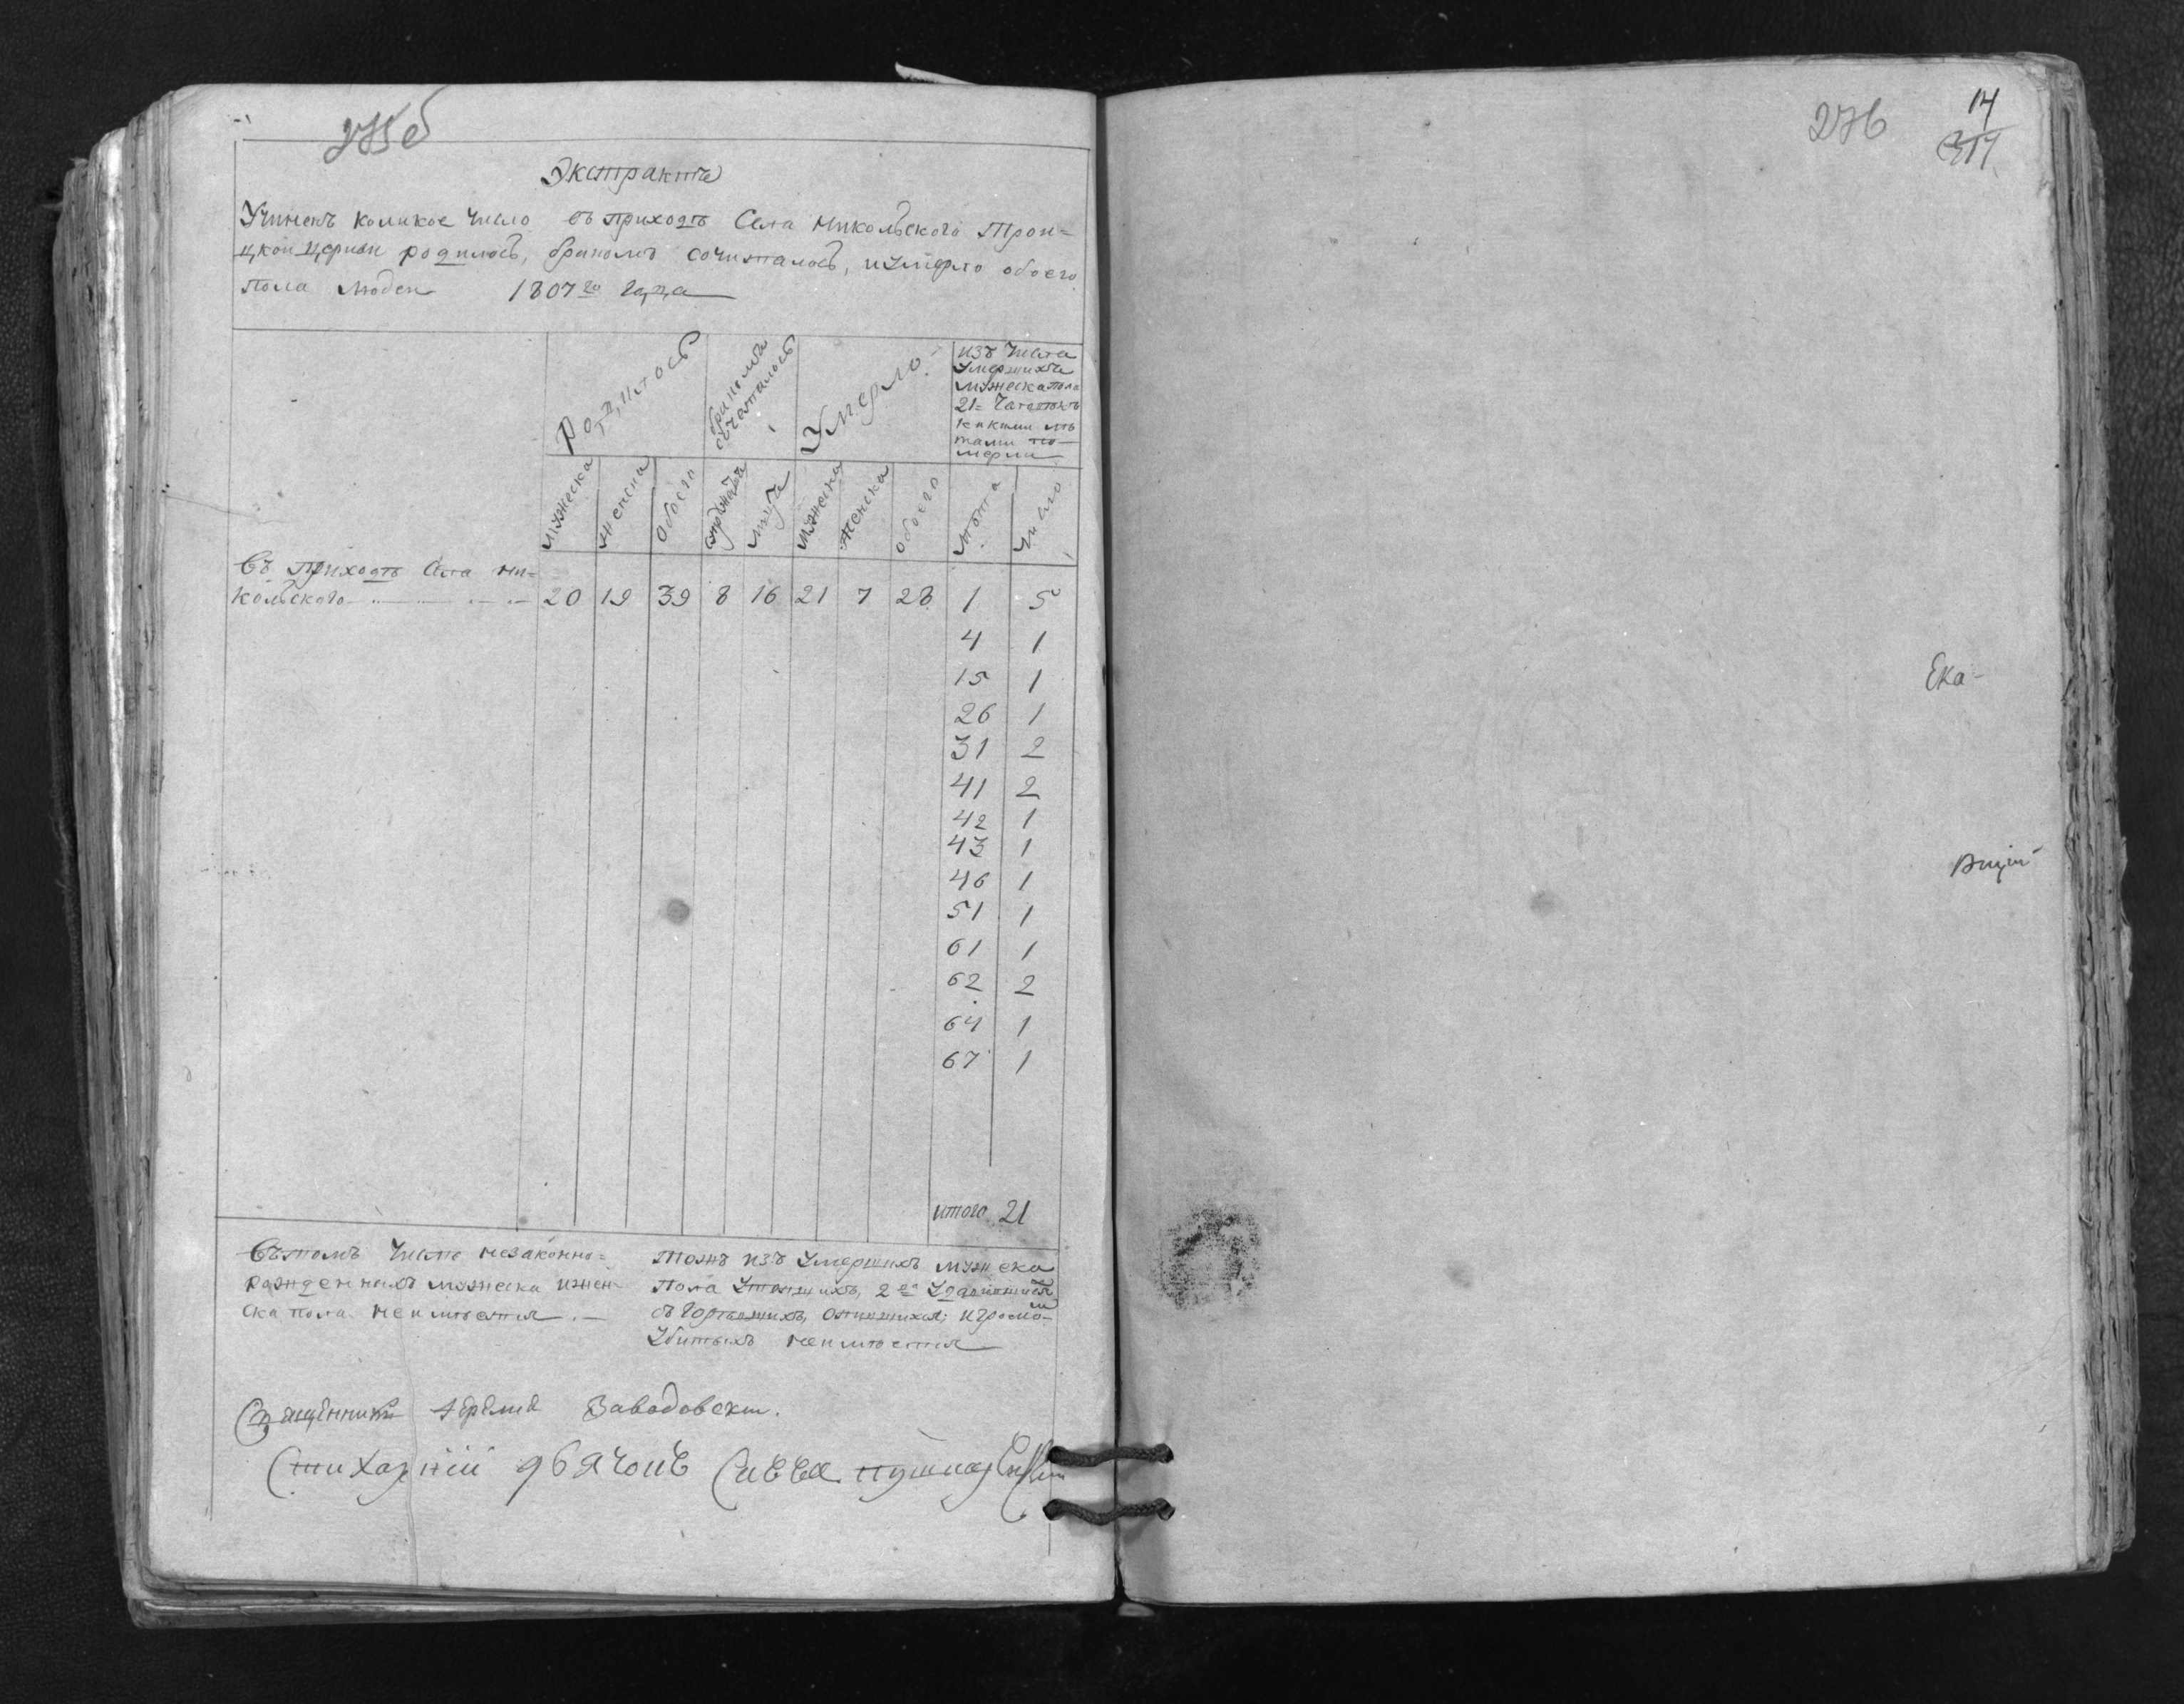 275 об
Экстрактъ
Учиненъ коликое число въ приходѣ Села Никольского Трои=
цкой церкви родилось, бракомъ сочиталось, и умерло обоего
пола людей 1807го года
Родилось
бракомъ сочеталось
Умерло
изъ числа
умершихъ
мужеска пола
21= человѣкъ
какими лѣ
тами по-
мерли
мужеска женска обоего лицъ мужеска женска обоего лѣта число
Въ приходѣ Села Ни=
кольского 20 19 39 8 16 21 7 28 1 5
4 1
15 1
26 1
31 2
41 2
42 1
43 1
46 1
51 1
61 1
62 2
64 1
67 1
итого 21
Въ томъ числѣ незаконно=
рожденныхъ мужеска и жен
ска пола неимѣется
Тожъ изъ умершихъ мужска
пола утопшихъ, 2го
сгорѣвшихъ, опившихся; и громо-
убитыхъ неимѣется
Священникъ Іеремія Заводовски.
Стихарній дьячокъ Савва
276
14
317
Ека-
вщій